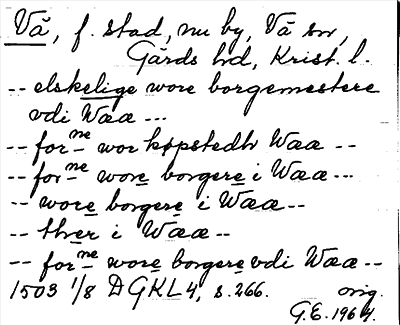 Vä, f. stad, nu by, Vä sn,
Gärds hd, Krist. l.
-- elskelige wore borgemestere
vdi Wææ ---
-- forne wor køpstedh Wææ --
-- forne wore borgere i Wææ ---
-- wore borgere i Wææ --
-- thꝫer i Wææ --
-- forne wore borgere vdi Wææ --
1503 1/8 DGKL 4, s. 266. orig.
G.E. 1964.